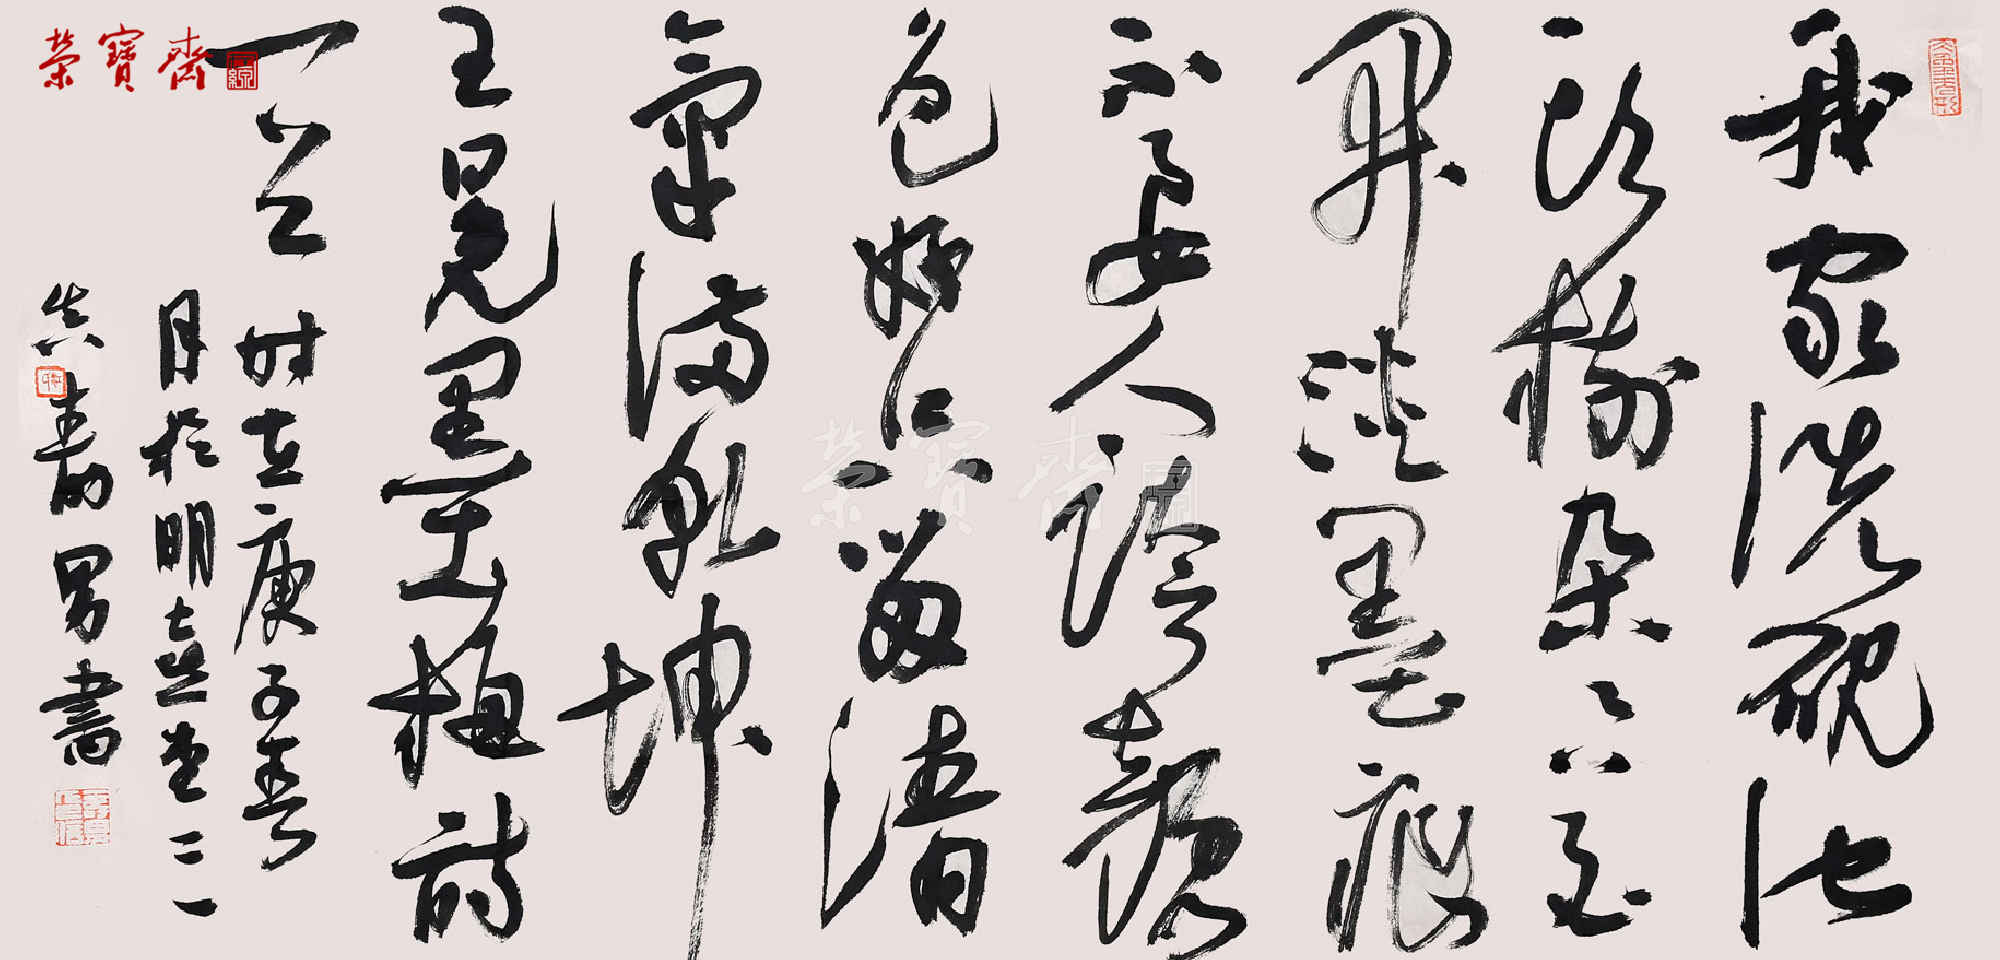 榮寶齋
我家洗硯池
頭樹朵々花
開淡墨痕
不要人誇顏
色好只留清
氣滿乾坤
王冕墨梅詩
一首
時在庚子春
月於明
書
榮寶齋